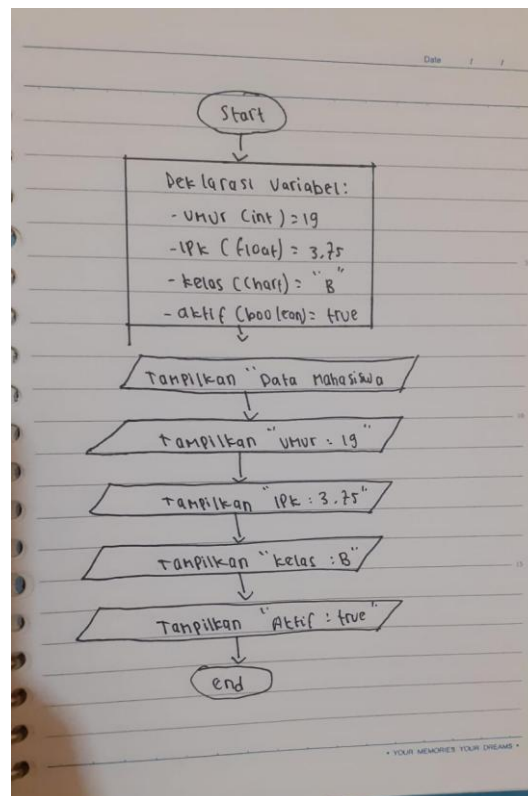 Date / /
Start
Deklarasi variabel:
- umur (int) = 19
- IPK (float) = 3.75
- kelas (Chart) = "B"
- aktif (boolean) = true
Tampilkan "Data Mahasiswa
Tampilkan "umur : 19"
Tampilkan "IPK : 3.75"
Tampilkan "kelas : B"
Tampilkan "Aktif : true"
end
• YOUR MEMORIES YOUR DREAMS •